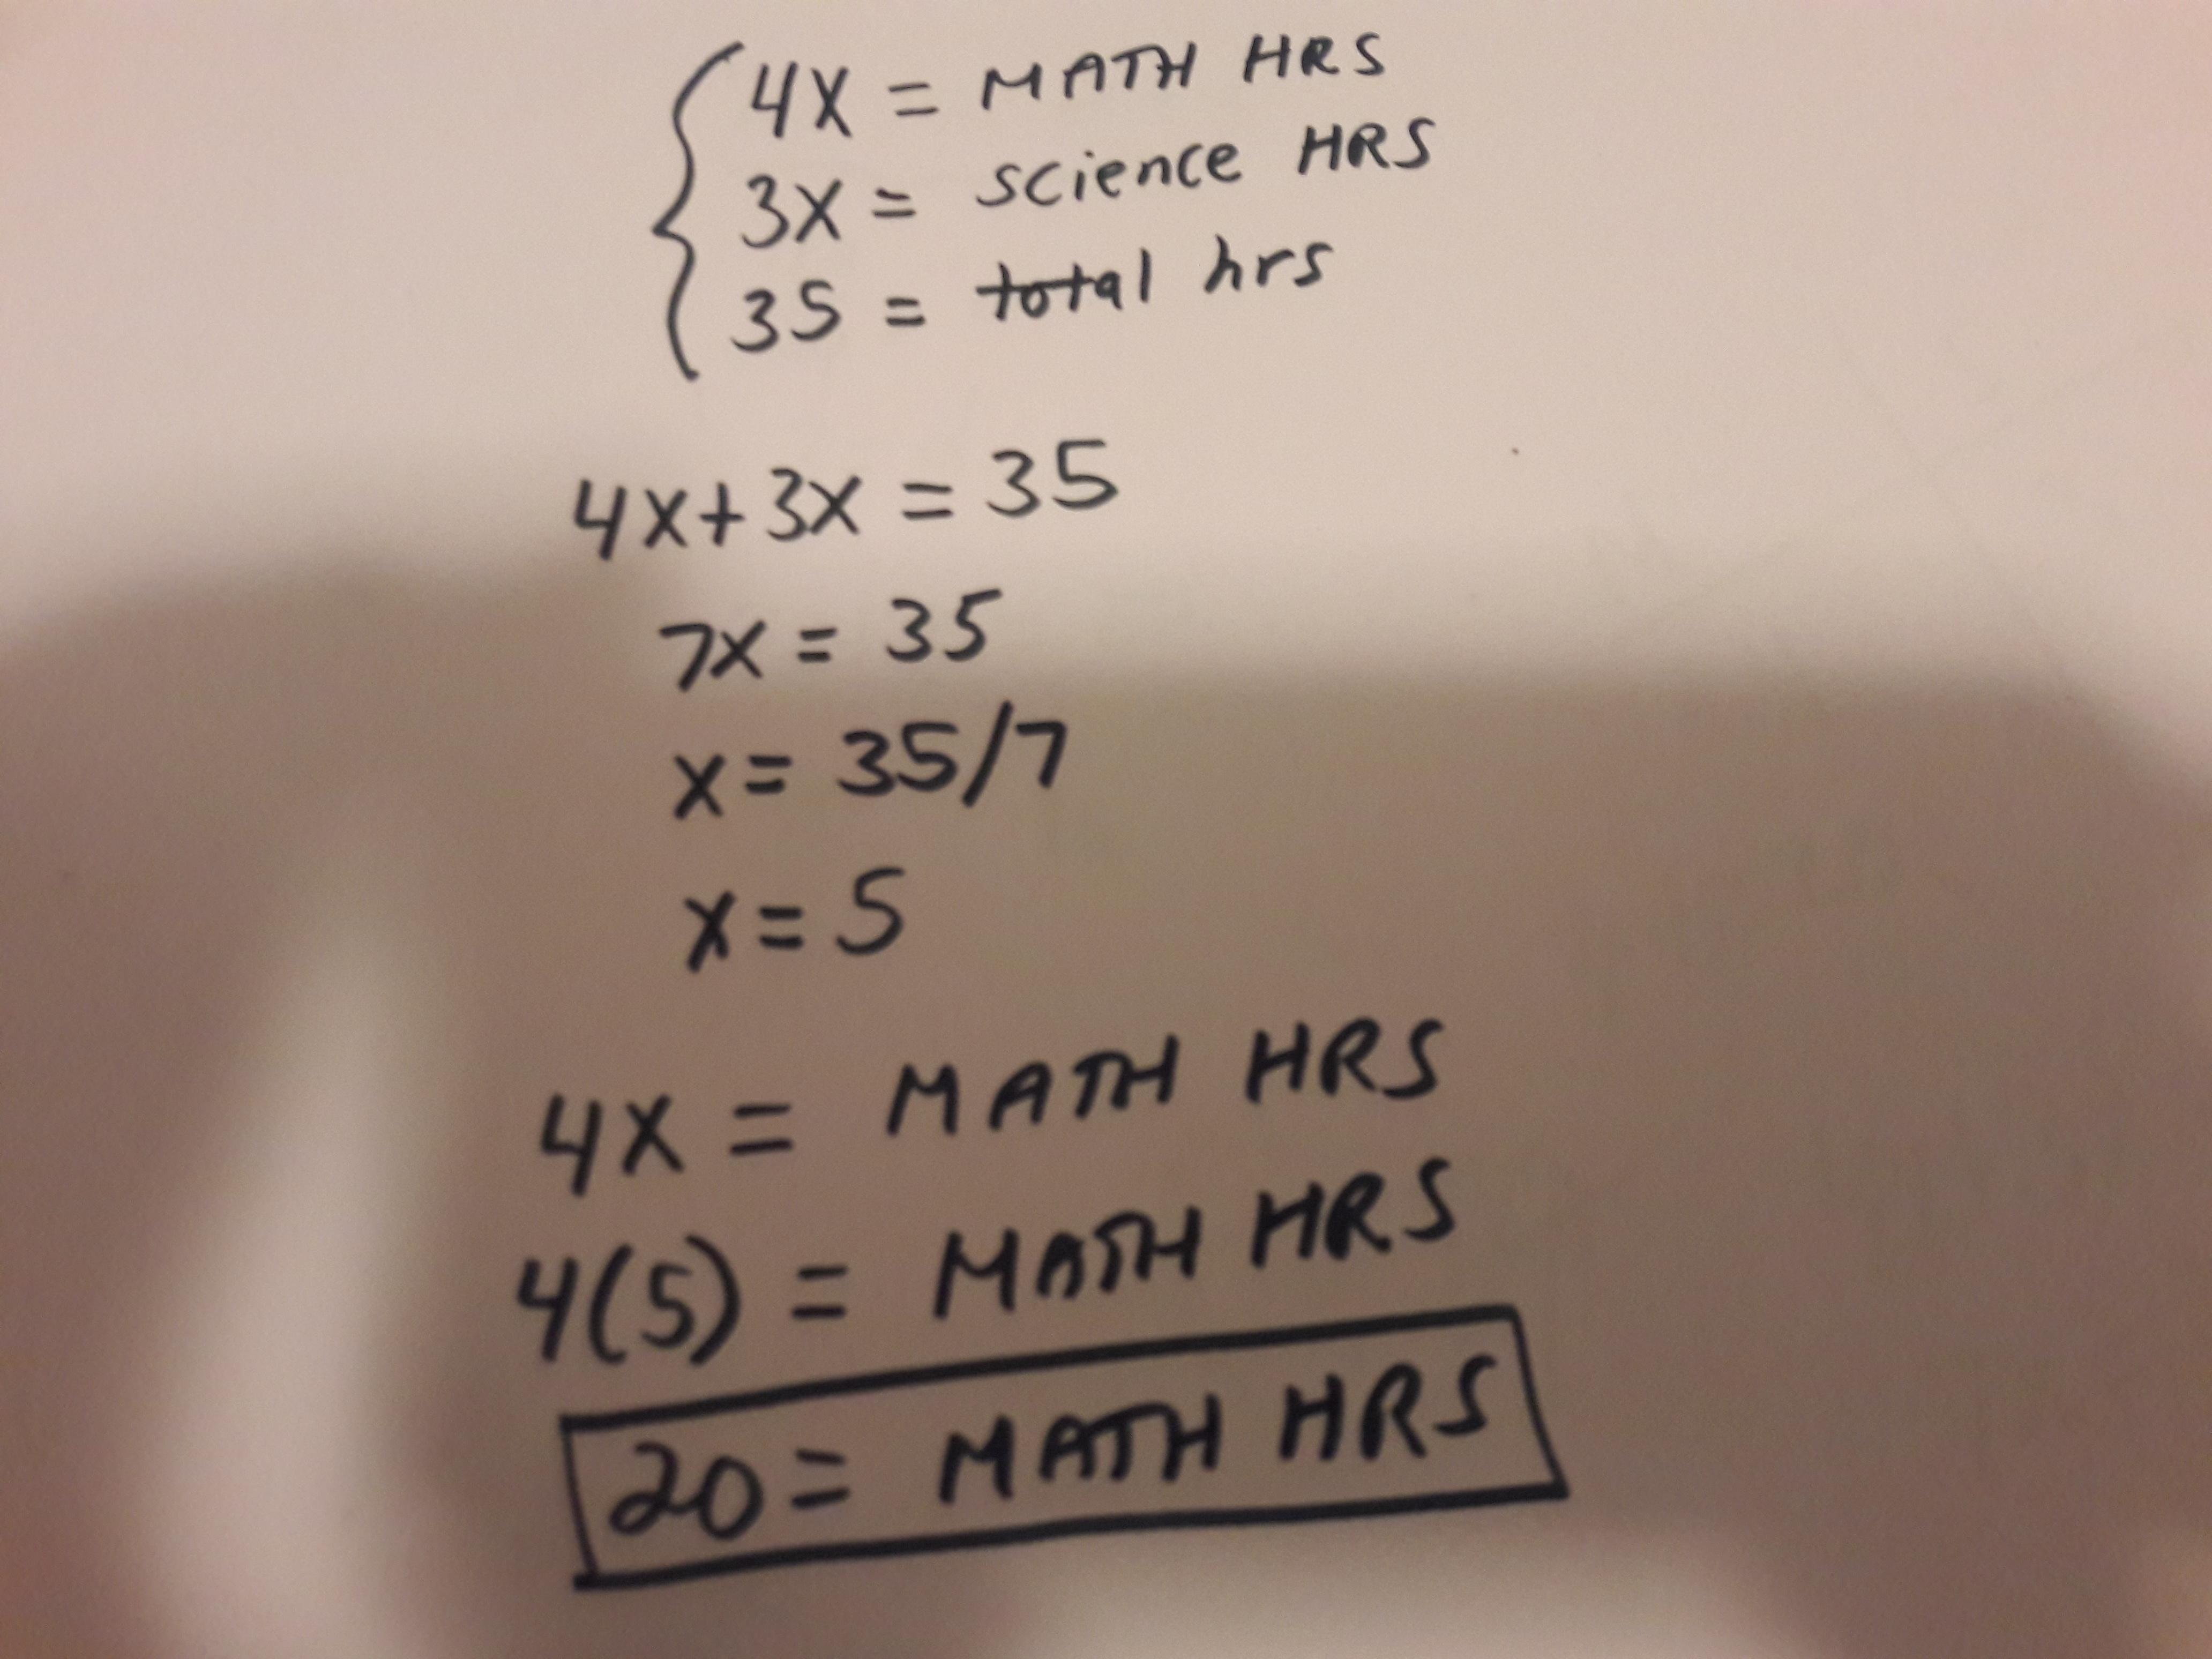 4X = MATH HRS
3X = science HRS
35 = total hrs
4X+3X = 35
7X = 35
X = 35/7
X = 5
4X = MATH HRS
4(5) = MATH HRS
20 = MATH HRS